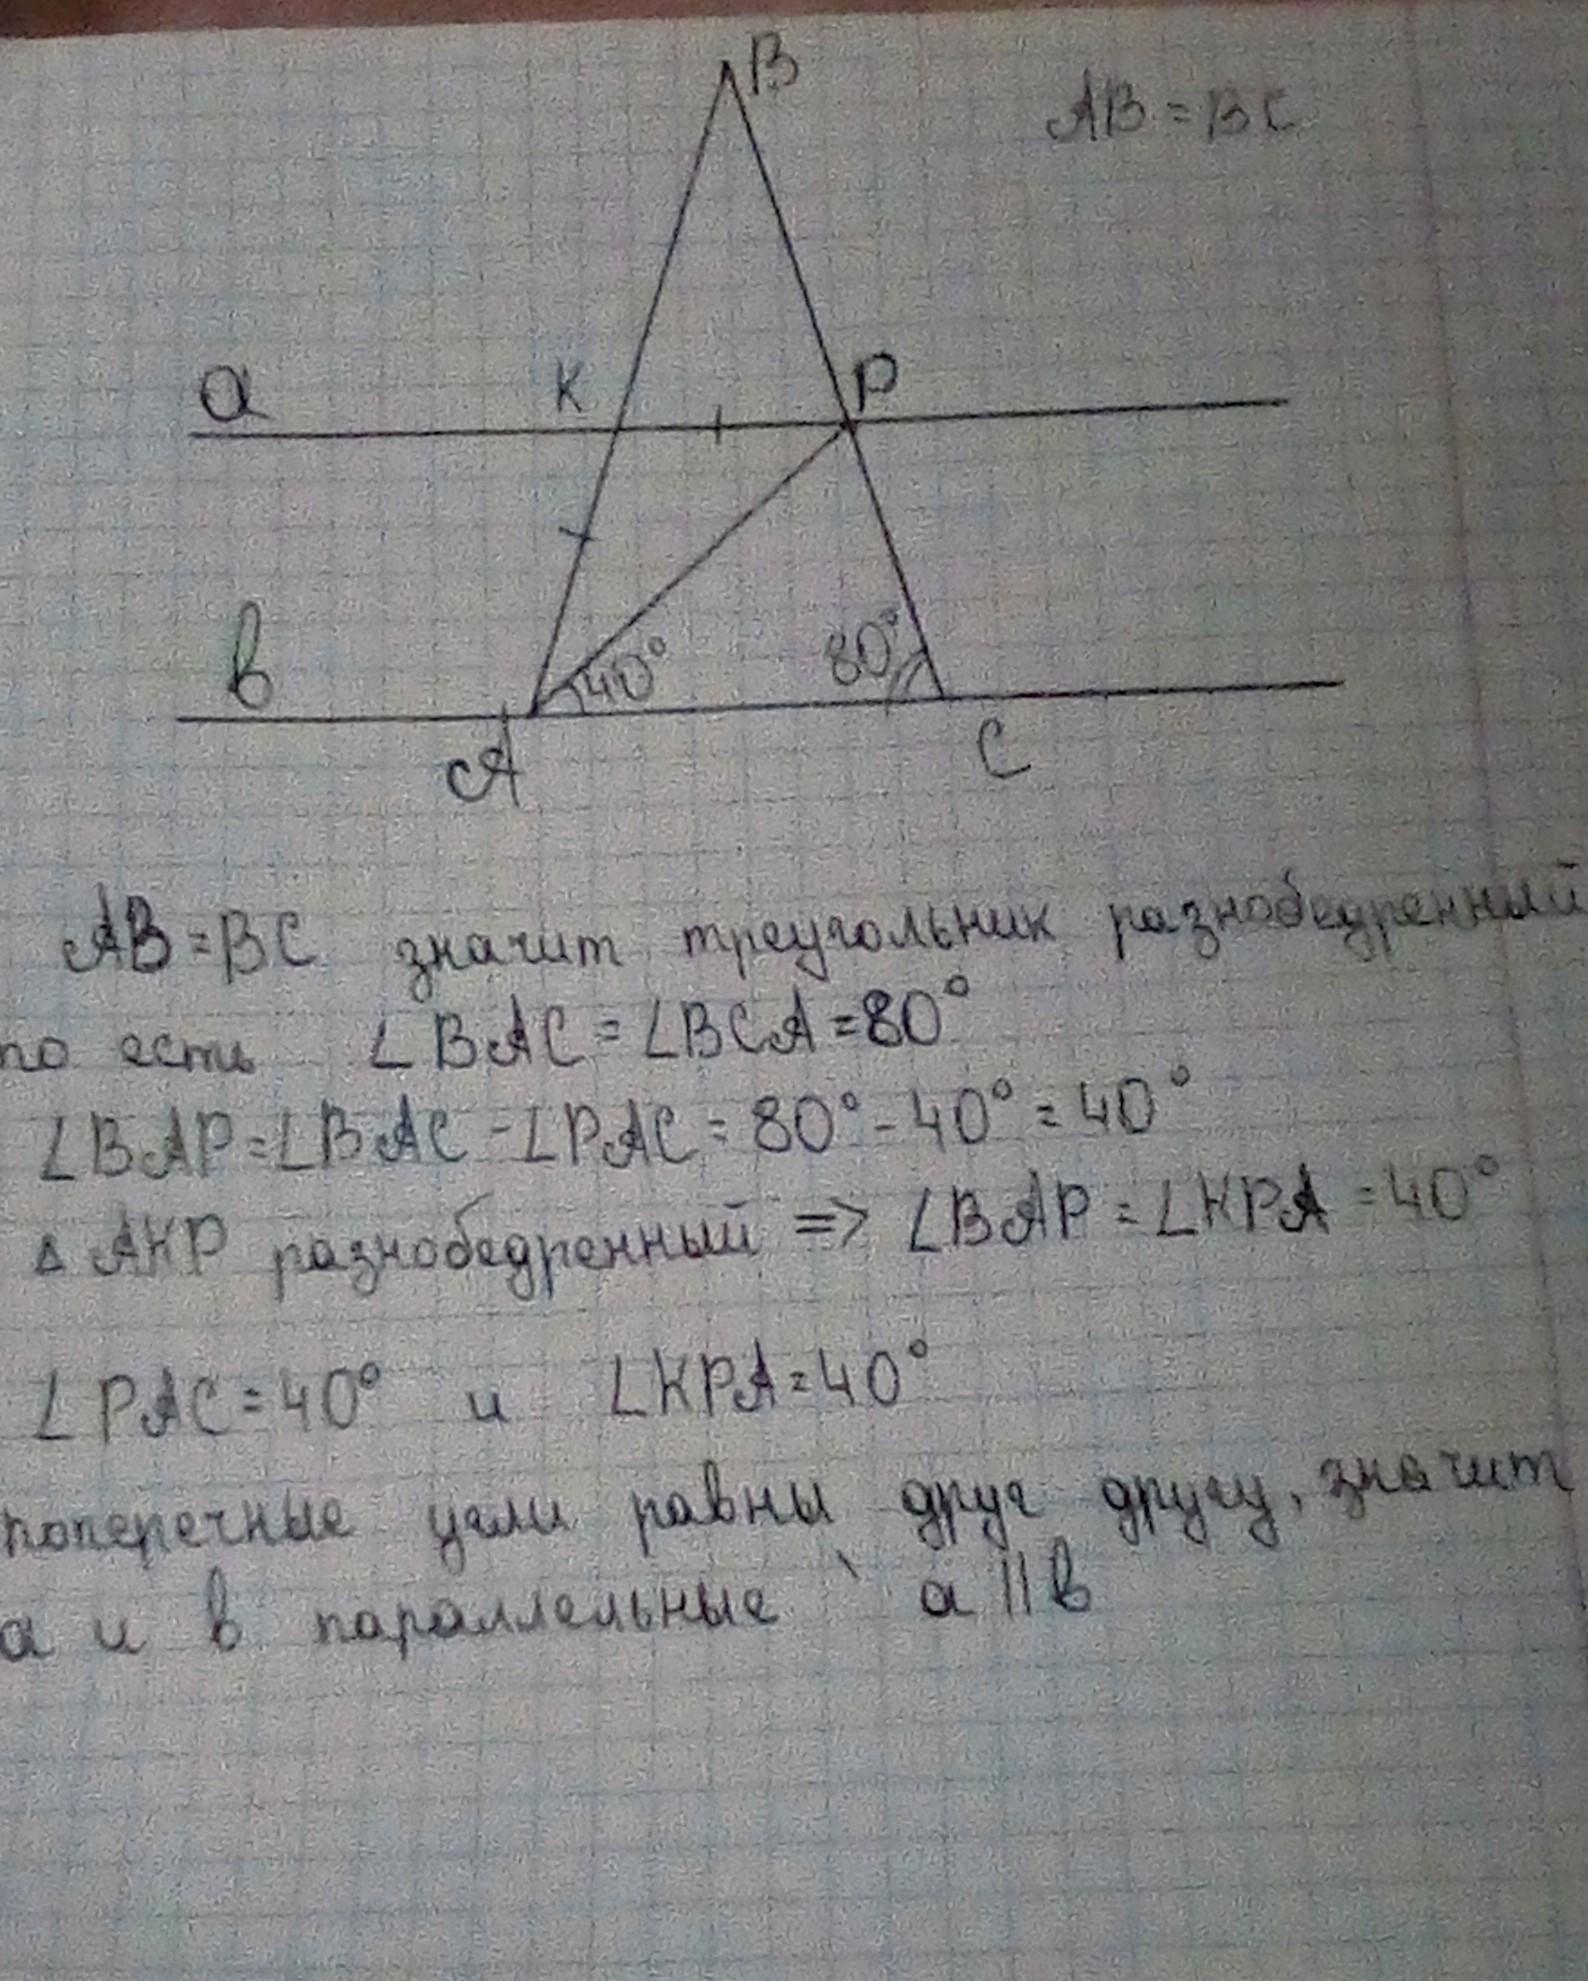 B
AB = BC
a
K
P
в
40°
80°
A
C
AB = BC значит треугольник разнобедренный
то есть ∠BAC = ∠BCA = 80°
∠BAP = ∠BAC - ∠PAC = 80° - 40° = 40°
Δ AKP разнобедренный => ∠BAP = ∠KPA = 40°
∠PAC = 40° и ∠KPA = 40°
поперечные угли равны друг другу, значит
a и в параллельные a || в